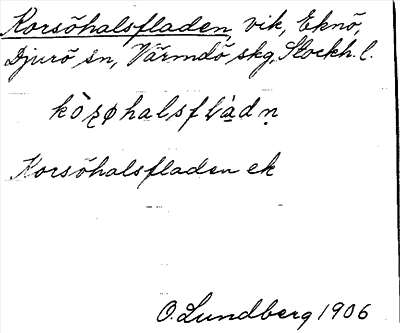 Korsöhalsfladen, vik, Eknö,
Djurö sn, Värmdö skg, Stockh. l.
Korsöhalsfladen ek
O. Lundberg 1906